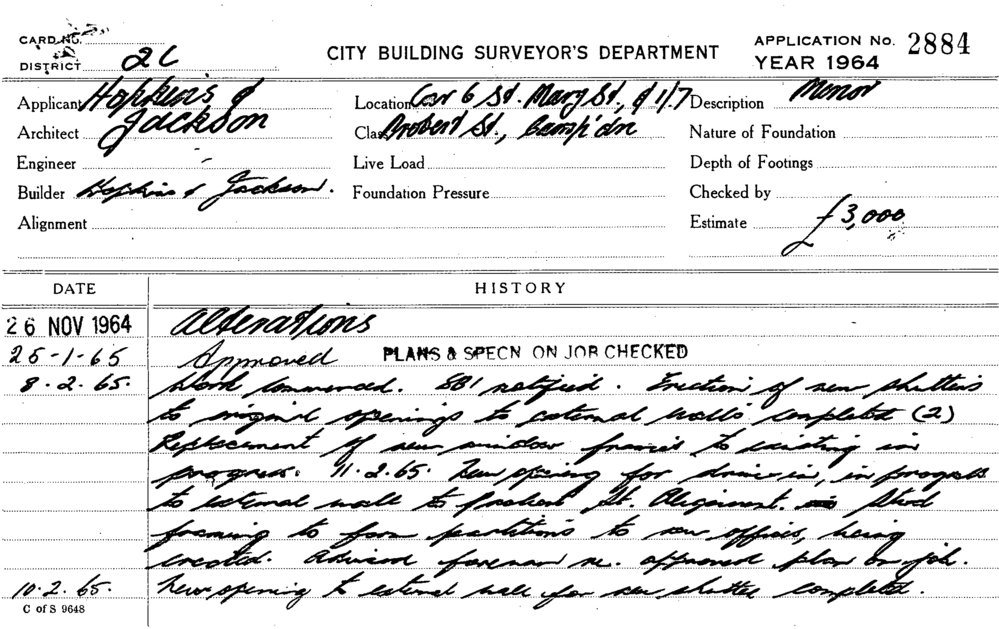 CARD NO.
DISTRICT 2C
CITY BUILDING SURVEYOR'S DEPARTMENT
APPLICATION No. 2884
YEAR 1964
Applicant Hopkins &
Jackson
Architect
Engineer -
Builder Hopkins & Jackson.
Alignment
Location Cnr 6 St. Mary St., & 1/7
Class Probert St., Camp'dn
Live Load
Foundation Pressure
Description Minor
Nature of Foundation
Depth of Footings
Checked by
Estimate £3,000
DATE HISTORY
26 NOV 1964 Alterations
25-1-65 Approved PLANS & SPECN ON JOB CHECKED
8.2.65. Work commenced. SB1 notified. Erection of new shutters
to original openings to external walls completed (2)
Replacement of new window frames to existing in
progress. 11.2.65. New opening for drive in, in progress
to external wall to Probert St. Alignment. Stud
framing to form partitions to new offices, being
erected. Advised foreman re. approved plan on job.
10.2.65. New opening to external wall for new shutter completed.
C of S 9648